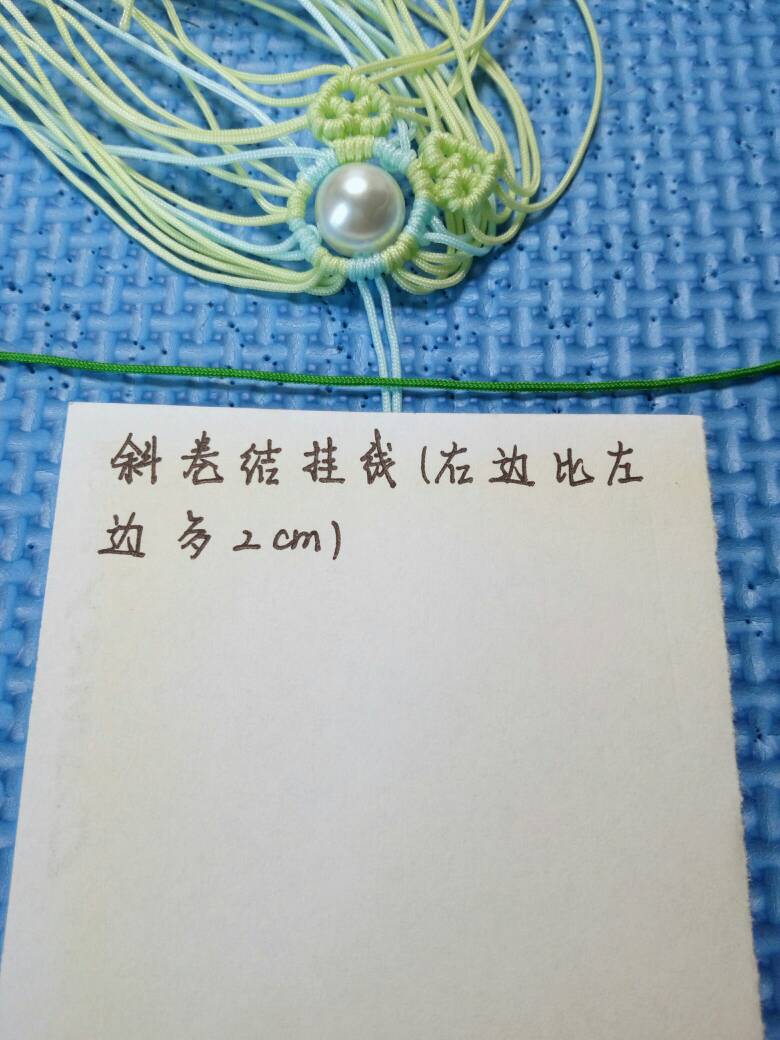 斜卷结挂线(右边比左
边多2cm)